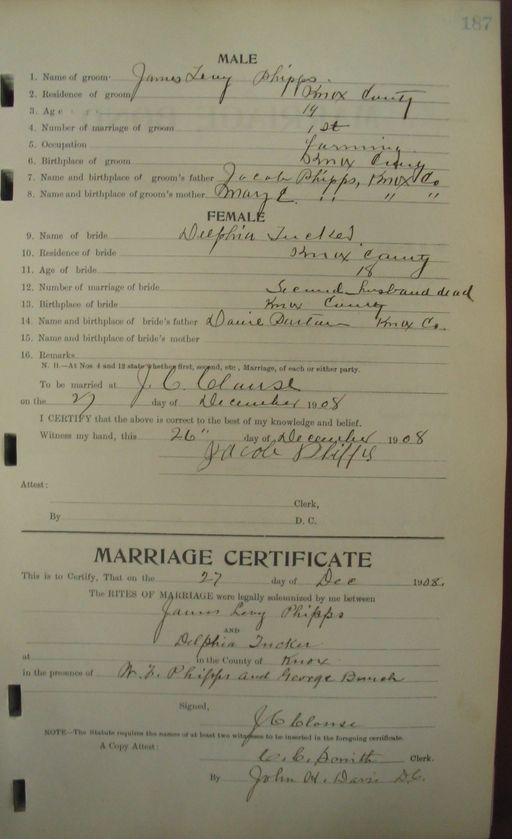 187
MALE
1. Name of groom James Levy Phipps
2. Residence of groom Knox County
3. Age 19
4. Number of marriage of groom 1st
5. Occupation Farming
6. Birthplace of groom Knox County
7. Name and birthplace of groom's father Jacob Phipps, Knox Co
8. Name and birthplace of groom's mother Mary E. " " "
FEMALE
9. Name of bride Delphia Tucker
10. Residence of bride Knox County
11. Age of bride 18
12. Number of marriage of bride Second husband dead
13. Birthplace of bride Knox County
14. Name and birthplace of bride's father Knox Co.
15. Name and birthplace of bride's mother
16. Remarks
N. B.—At Nos. 4 and 12 state whether first, second, etc., Marriage, of each or either party.
To be married at J. C. Clouse
on the 27 day of December 1908
I CERTIFY that the above is correct to the best of my knowledge and belief.
Witness my hand, this 26" day of December 1908
Jacob Phipps
Attest:
Clerk,
By D. C.
MARRIAGE CERTIFICATE
This is to Certify, That on the 27 day of Dec 1908.
The RITES OF MARRIAGE were legally solemnized by me between
James Levy Phipps
AND
Delphia Tucker
at in the County of Knox
in the presence of Phipps and George
Signed,
J C Clouse
NOTE—The Statute requires the names of at least two witnesses to be inserted in the foregoing certificate.
A Copy Attest: Smith Clerk.
By John H. Davis D.C.